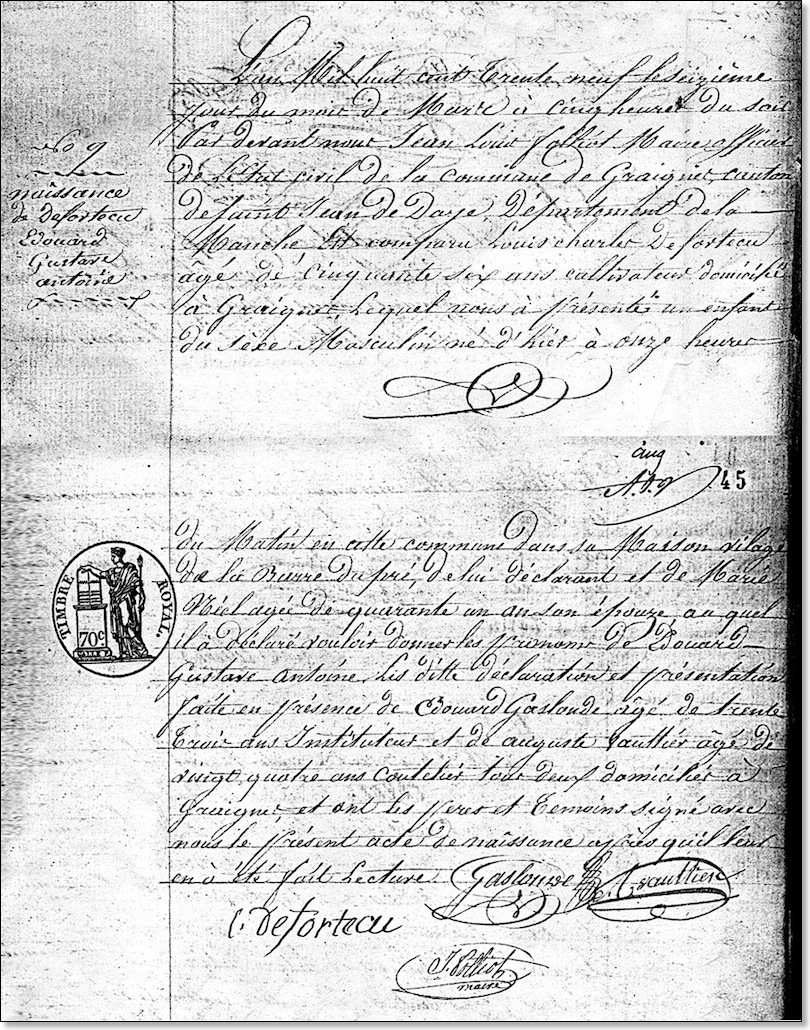 L'an Mil huit cent trente neuf le seizième
jour du mois de Mars à cinq heures du soir
Par devant nous Jean Louis folliot Maire officier
de l'état civil de la commune de Graignes, canton
de Saint Jean de Daye, Département de la
Manche Est comparu Louis charles Deforteau
âgé de cinquante six ans cultivateur domicilié
à Graignes, Lequel nous à présenté un enfant
du sexe Masculin né d'hier à onze heures
No 9
naissance
de Deforteau
Edouard
Gustave
antoine
45
du Matin en cette commune dans sa Maison vilage
de la Barre Dupré, de lui déclarant et de Marie
Néel agée de quarante un an son épouze au quel
il à déclaré vouloir donner les prenoms de Edouard
Gustave Antoine, Les ditte déclaration et présentation
faite en présence de Edouard Gaslonde âgé de trente
trois ans Instituteur et de auguste Vauttier âgé de
vingt quatre ans coutelier tous deux domiciliés à
Graignes, et ont les peres et temoins signé avec
nous le présent acte de naissance après qu'il leur
en à été fait Lecture.
Gaslonde
Vauttier
C. Deforteau
J. folliot
maire
TIMBRE ROYAL.
70c